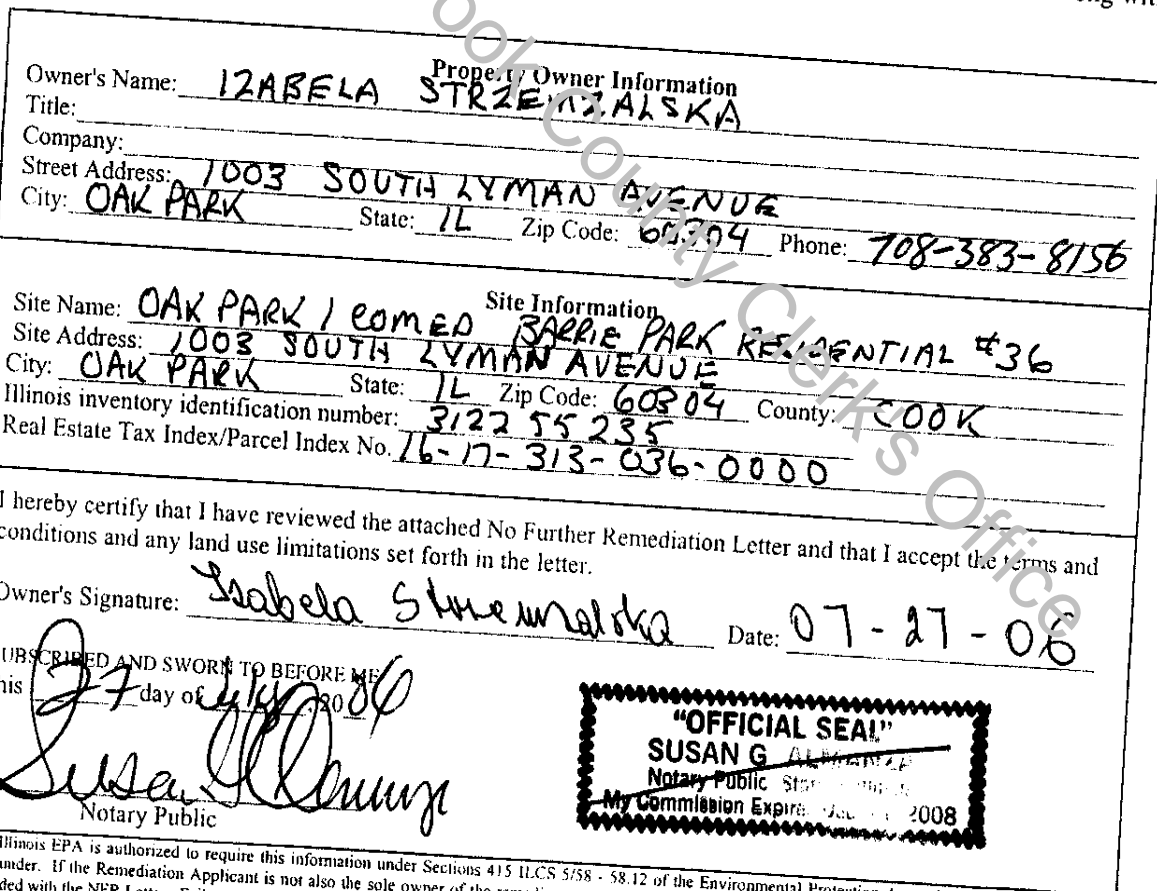 Property Owner Information
Owner's Name: IZABELA STRZEMZALSKA
Title:
Company:
Street Address: 1003 SOUTH LYMAN AVENUE
City: OAK PARK State: IL Zip Code: 60304 Phone: 708-383-8156
Site Information
Site Name: OAK PARK / COMED BARRIE PARK RESIDENTIAL #36
Site Address: 1003 SOUTH LYMAN AVENUE
City: OAK PARK State: IL Zip Code: 60304 County: COOK
Illinois inventory identification number: 3122 55 235
Real Estate Tax Index/Parcel Index No. 16-17-313-036-0000
I hereby certify that I have reviewed the attached No Further Remediation Letter and that I accept the terms and
conditions and any land use limitations set forth in the letter.
Owner's Signature: Izabela Date: 07-27-06
SUBSCRIBED AND SWORN TO BEFORE ME
this 27 day of July, 2006
Notary Public
"OFFICIAL SEAL"
SUSAN G ALMANZA
Notary Public
My Commission Expires 2008
Illinois EPA is authorized to require this information under Sections 415 ILCS 5/58 - 58.12 of the Environmental Protection
under. If the Remediation Applicant is not also the sole owner of the
Cook County Clerk's Office